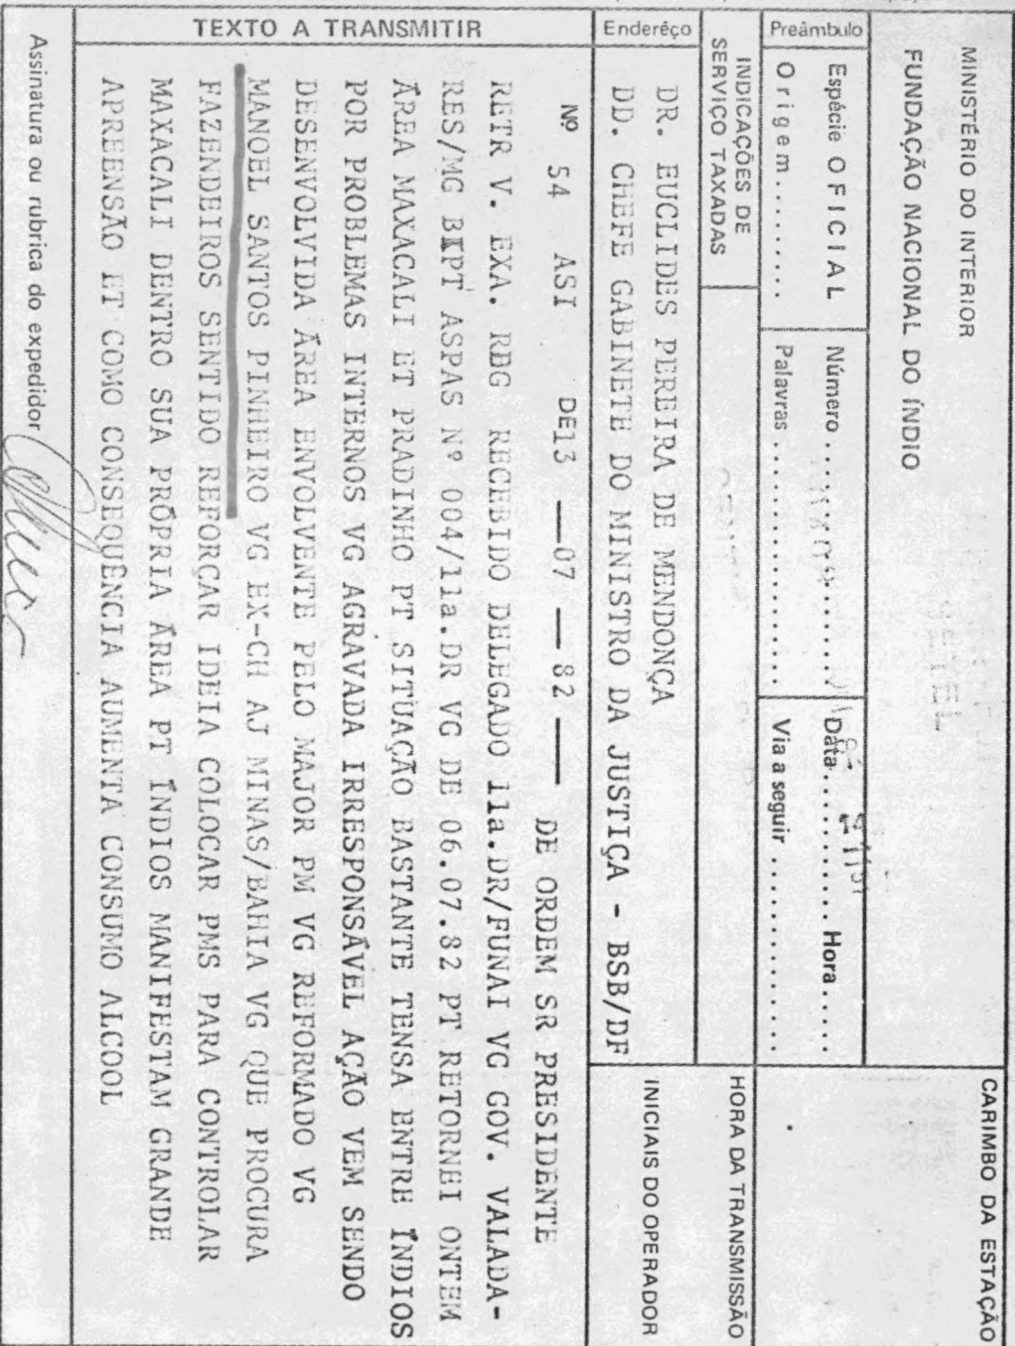 MINISTÉRIO DO INTERIOR
FUNDAÇÃO NACIONAL DO ÍNDIO
CARIMBO DA ESTAÇÃO
Preâmbulo
Espécie OFICIAL
Número
Data
Hora
Origem
Palavras
Via a seguir
INDICAÇÕES DE
SERVIÇO TAXADAS
HORA DA TRANSMISSÃO
Enderêço
DR. EUCLIDES PEREIRA DE MENDONÇA
DD. CHEFE GABINETE DO MINISTRO DA JUSTIÇA - BSB/DF
INICIAIS DO OPERADOR
TEXTO A TRANSMITIR
Nº 54 ASI DE13 —07 — 82 — DE ORDEM SR PRESIDENTE
RETR V. EXA. RDG RECEBIDO DELEGADO 11a.DR/FUNAI VG GOV. VALADA-
RES/MG BIPT ASPAS Nº 004/11a.DR VG DE 06.07.82 PT RETORNEI ONTEM
ÁREA MAXACALI ET PRADINHO PT SITUAÇÃO BASTANTE TENSA ENTRE ÍNDIOS
POR PROBLEMAS INTERNOS VG AGRAVADA IRRESPONSÁVEL AÇÃO VEM SENDO
DESENVOLVIDA ÁREA ENVOLVENTE PELO MAJOR PM VG REFORMADO VG
MANOEL SANTOS PINHEIRO VG EX-CH AJ MINAS/BAHIA VG QUE PROCURA
FAZENDEIROS SENTIDO REFORÇAR IDEIA COLOCAR PMS PARA CONTROLAR
MAXACALI DENTRO SUA PRÓPRIA ÁREA PT ÍNDIOS MANIFESTAM GRANDE
APREENSÃO ET COMO CONSEQUÊNCIA AUMENTA CONSUMO ALCOOL
Assinatura ou rubrica do expedidor